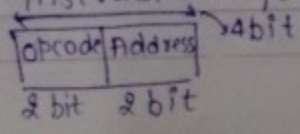 4bit
opcode Address
2 bit 2 bit